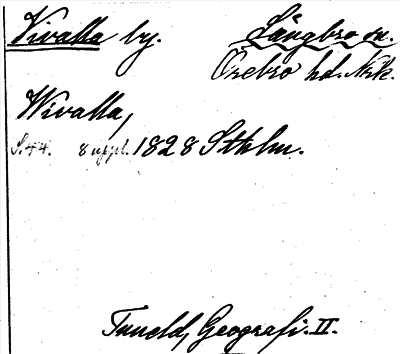 Vivalla by. Långbro sn.
Örebro hd. Nrk.
Wivalla,
S. 44. 8 uppl. 1828 Sthlm.
Tuneld, Geografi. II.